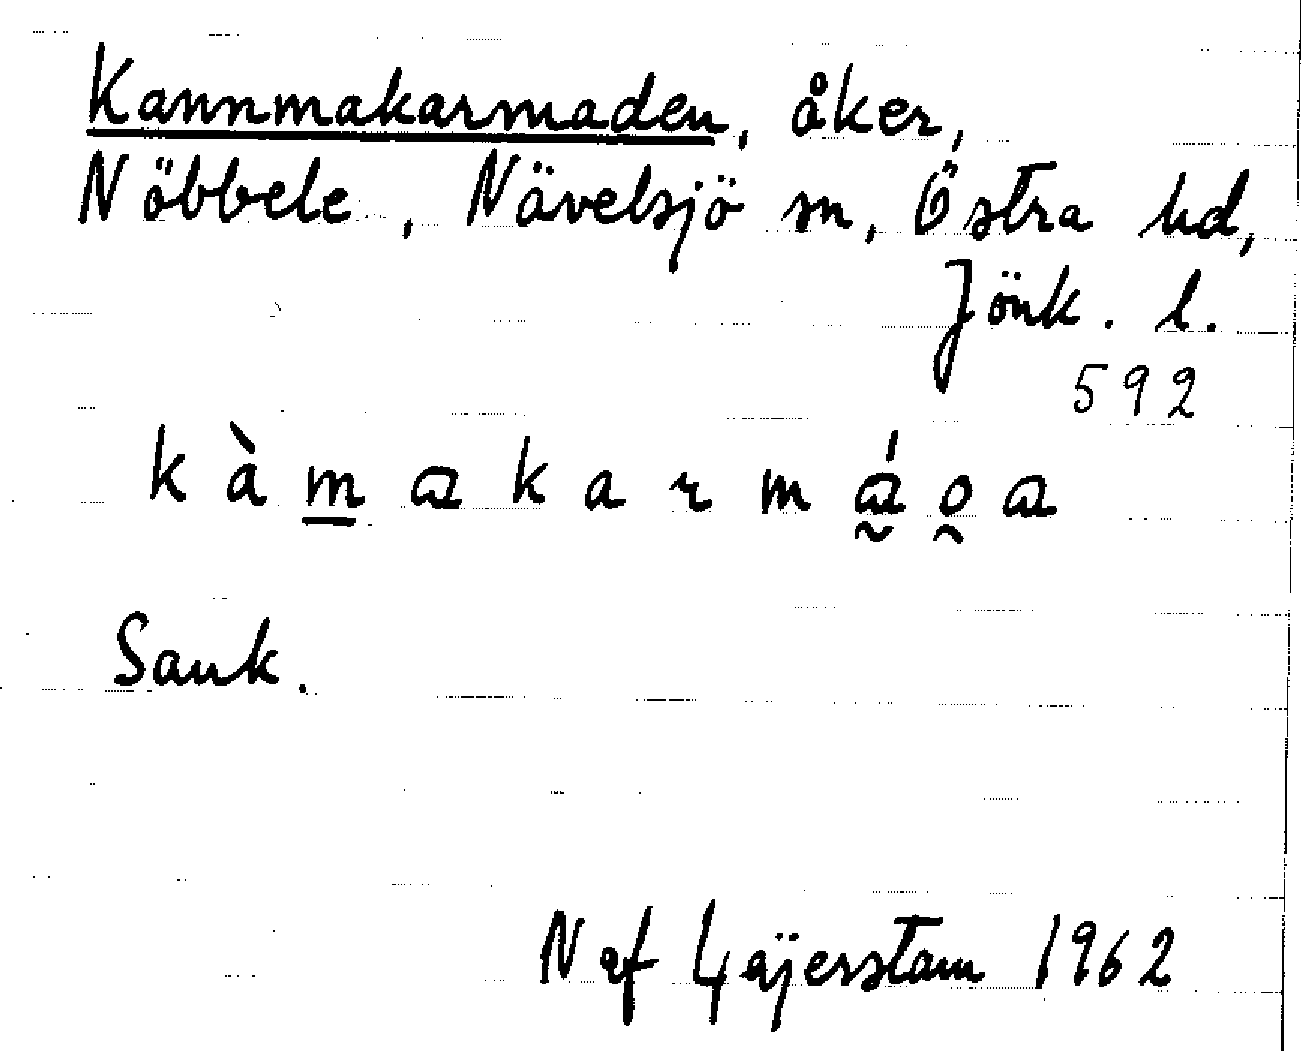 Kannmakarmaden, åker,
Nöbbele, Nävelsjö sn, Östra hd,
Jönk. l.
592
Sank.
N af Gejerstam 1962